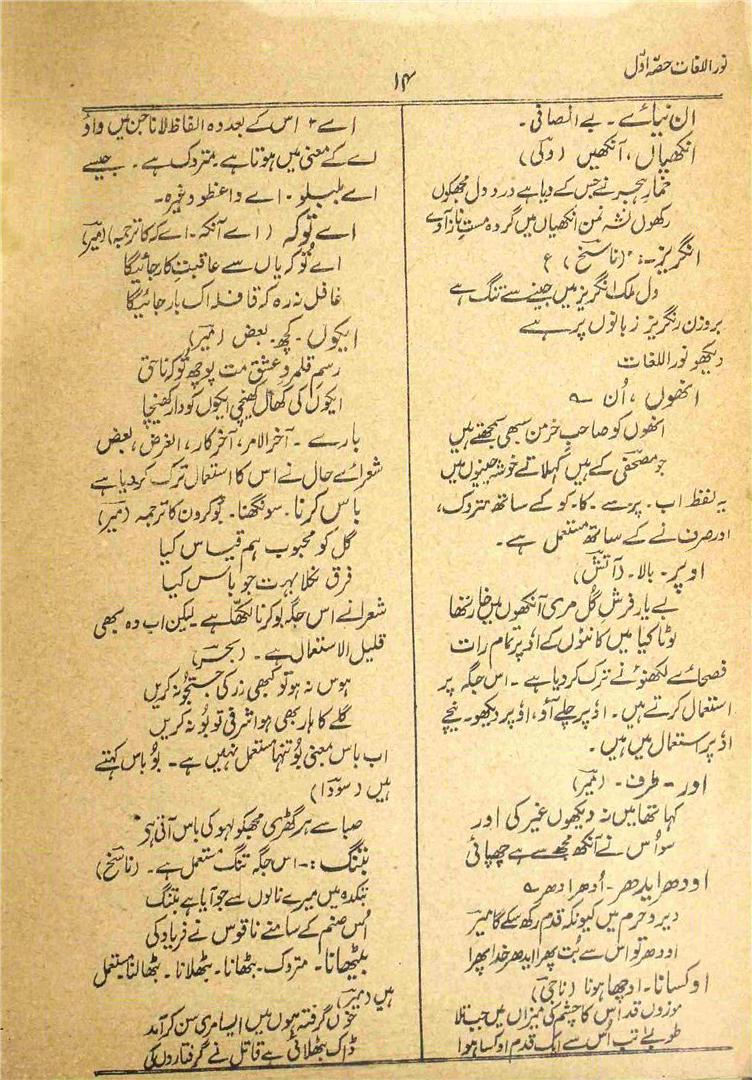 نور اللغات حصہ اوّل
۱۴
ان نیائے۔ بے انصافی۔
انکھیاں، آنکھیں (ولی)
خمارِ ہجر نے جس کے دیا ہے دردِ دل مجھکوں
رکھوں نشہ نمن انکھیاں میں گر وہ مستِ ناز آوے
انگریز:۔ (ناسخ) ع
دل ملک انگریز میں جینے سے تنگ ہے
بروزن رنگریز زبانوں پر ہے
دیکھو نور اللغات
انھوں، اُن
انھوں کو صاحبِ خرمن سبھی سمجھتے ہیں
جو مصحفیؔ کے ہیں کہلاتے خوشہ چینوں میں
یہ لفظ اب۔ پر سے۔ کا۔ کو کے ساتھ متروک،
اور صرف نے کے ساتھ مستعمل ہے۔
اوپر۔ بالا۔ (آتش)
بے یار فرشِ گل مری آنکھوں میں خار تھا
لوٹا کیا میں کانٹوں کے اوپر تمام رات
فصحائے لکھنؤ نے ترک کر دیا ہے۔ اس جگہ پر
استعمال کرتے ہیں۔ اوپر چلے آؤ، اوپر دیکھو۔ نیچے
اوپر استعمال میں ہیں۔
اور۔ طرف۔ (میر)
کہا تھا میں نہ دیکھوں غیر کی اور
سو اُس نے آنکھ مجھ سے ہے چھپائی
اودھر ایدھر۔ اُدھر اِدھر
دیر و حرم میں کیونکہ قدم رکھ سکے گا میرؔ
اودھر تو اس سے بُت پھرا ایدھر خدا پھرا
اوکسانا۔ اوچھا ہونا (ناجی)
موزوں قد اس کا چشم کی میزاں میں جب تلا
طوبیٰ تب اُس سے ایک قدم اوکسا ہوا
اے ۲ اس کے بعد وہ الفاظ لانا جن میں واؤ
اے کے معنی میں ہوتا ہے۔ متروک ہے۔ جیسے
اے بلبلو۔ اے واعظو وغیرہ۔
اے توکہ (اے آنکہ۔ اے کہ کا ترجمہ) (میر)
اے تُو کہ یاں سے عاقبتِ کار جائیگا
غافل نہ رہ کہ قافلہ اک بار جائیگا
ایکوں۔ کچھ۔ بعض (میر)
رسمِ قلمروِ عشق مت پوچھ تُو کہ ناحق
ایکوں کی کھال کھینچی ایکوں کو دار کھینچا
بارے۔ آخر الامر، آخر کار، الغرض، بعض
شعرائے حال نے اس کا استعمال ترک کر دیا ہے
باس کرنا۔ سونگھنا۔ بو کرون کا ترجمہ (میر)
گل کو محبوب ہم قیاس کیا
فرق نکلا بہت جو باس کیا
شعرا نے اس جگہ بو کرنا لکھا ہے۔ لیکن اب وہ بھی
قلیل الاستعمال ہے۔ (بحر)
ہوس نہ ہو تو کبھی زر کی جستجو نہ کریں
گلے کا ہار بھی ہو اشرفی تو بُو نہ کریں
اب باس معنی بُو تنہا مستعمل نہیں ہے۔ بُو باس کہتے
ہیں (سودا)
صبا سے ہر گھڑی مجھکو لہو کی باس آتی ہے
بتنگ:۔ اس جگہ تنگ مستعمل ہے۔ (ناسخ)
بتکدہ میں میرے نالوں سے جو آیا ہے بتنگ
اُس صنم کے سامنے ناقوس نے فریاد کی
بٹھانا۔ متروک۔ بٹھانا۔ بٹھلانا۔ بٹھالنا مستعمل
ہیں (میر)
خوں گرفتہ ہوں میں ایسا مری سن کر آمد
ڈاک بٹھلائی ہے قاتل نے گرفتاروں کی